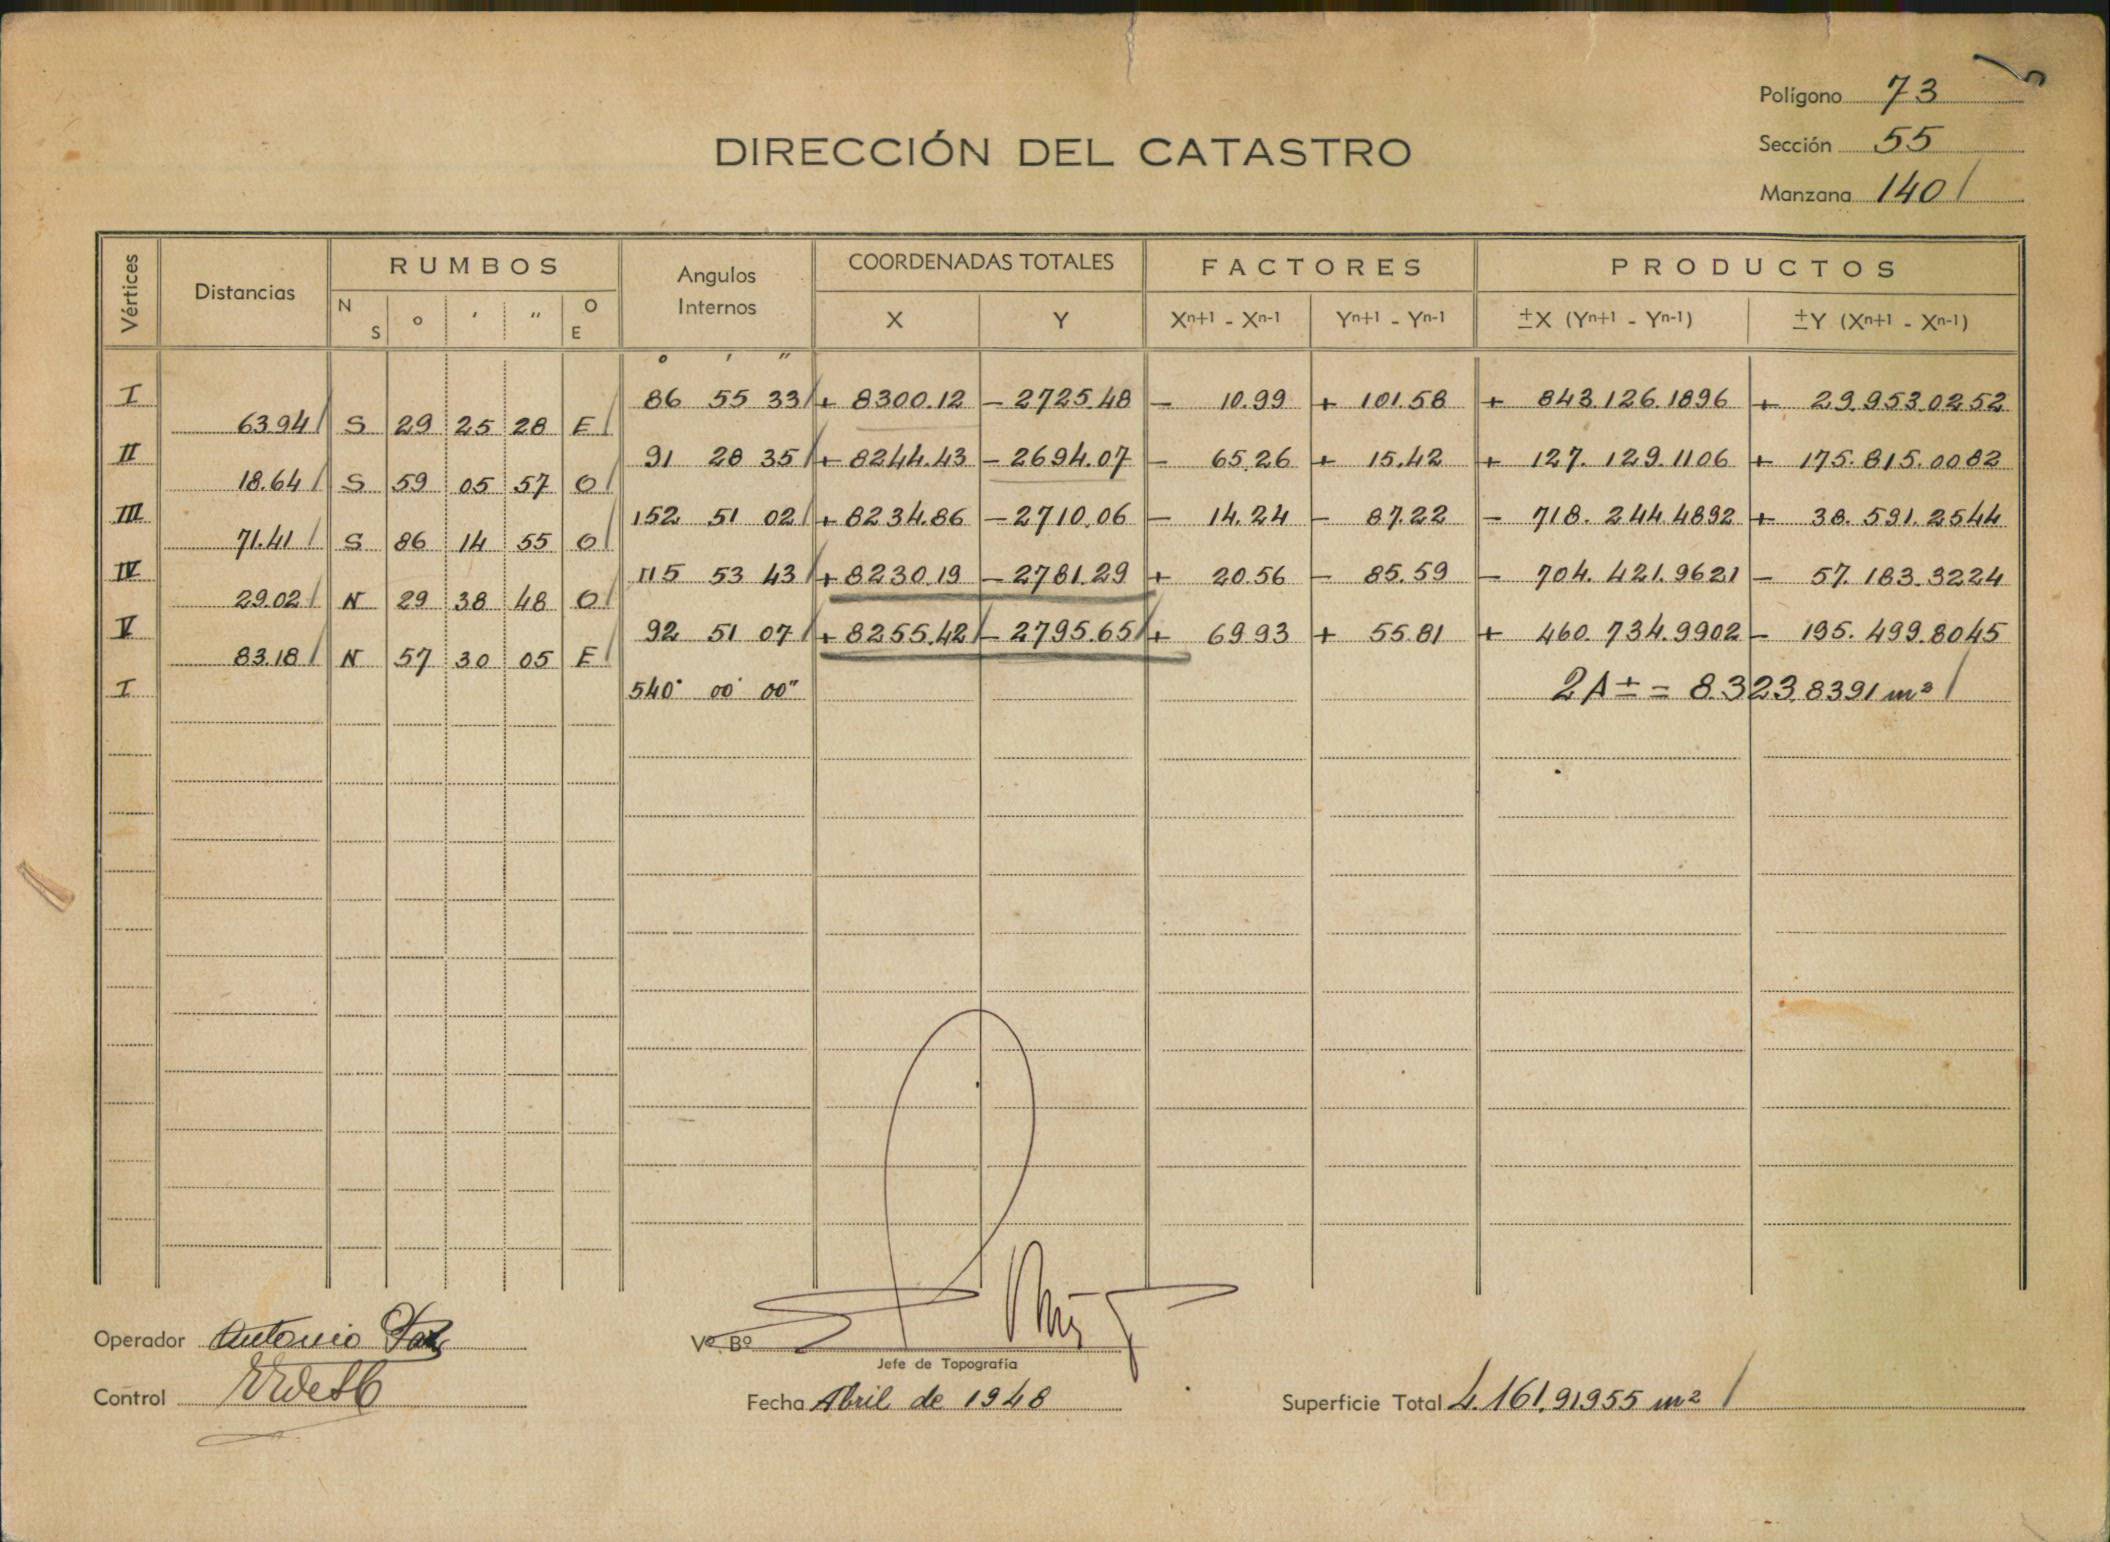 Polígono 73
DIRECCIÓN DEL CATASTRO
Sección 55
Manzana 140
Vértices Distancias RUMBOS Angulos Internos COORDENADAS TOTALES FACTORES PRODUCTOS
N S ° ' " O E X Y Xn+1 - Xn-1 Yn+1 - Yn-1 ±X (Yn+1 - Yn-1) ±Y (Xn+1 - Xn-1)
° ' "
I 86 55 33 + 8300.12 - 2725.48 - 10.99 + 101.58 + 843.126.1896 + 29.953.0252
63.94 S 29 25 28 E
II 91 28 35 + 8244.43 - 2694.07 - 65.26 + 15.42 + 127.129.1106 + 175.815.0082
18.64 S 59 05 57 O
III 152 51 02 + 8234.86 - 2710.06 - 14.24 - 87.22 - 718.244.4892 + 38.591.2544
71.41 S 86 14 55 O
IV 115 53 43 + 8230.19 - 2781.29 + 20.56 - 85.59 - 704.421.9621 - 57.183.3224
29.02 N 29 38 48 O
V 92 51 07 + 8255.42 - 2795.65 + 69.93 + 55.81 + 460.734.9902 - 195.499.8045
83.18 N 57 30 05 E
I 540° 00' 00" 2A ± = 8.323.8391 m²
Operador Antonio
Vº Bº
Jefe de Topografía
Control
Fecha Abril de 1948
Superficie Total 4.161.91955 m²